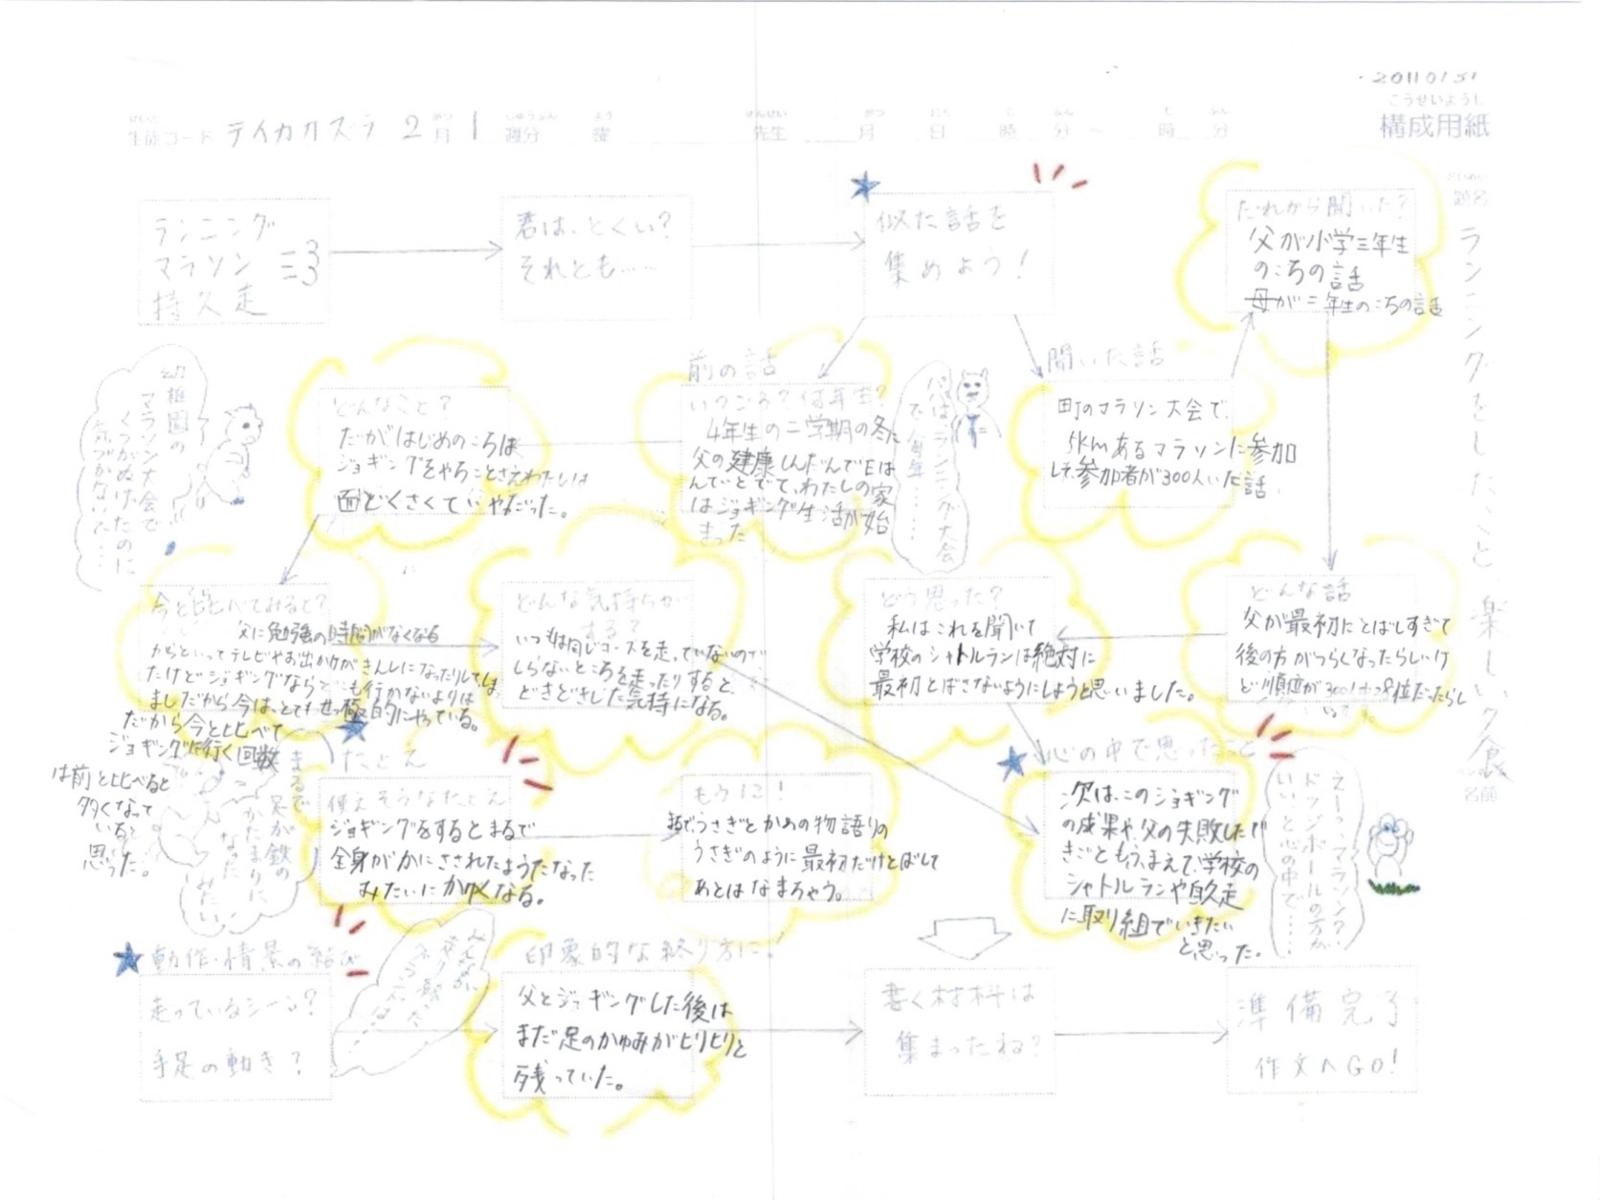 20110151
こうせいようし
構成用紙
生徒コード テイカカズラ 2月 1週分 曜 先生 月 日 時 分 ~ 時 分
題名
ランニングをしたこと、楽しい夕食
名前
ランニング
マラソン
持久走
君は、とくい?
それとも……
似た話を
集めよう!
だれから聞いた?
父が小学三年生
のころの話
母が二年生のころの話
聞いた話
町のマラソン大会で、
5kmあるマラソンに参加
して参加者が300人いた話
前の話
いつごろ?何年生?
4年生の二学期の冬に
父の健康しんだんで
とでて、わたしの家
はジョギング生活が始
まった
パパは、ランニング大会
で、
どんなこと?
だがはじめのころは
ジョギングをやることさえわたしは
面どくさくていやだった。
幼稚園の
マラソン大会で
くつがぬげたのに
気づかないで……
今と比べてみると?
父に勉強の時間がなくなる
からといってテレビやお出かけがきんしになったりしてしま
たけどジョギングなら
ましだから今は、とてもせっ極的にやっている。
だから今と比べて
ジョギングに行く回数
は前と比べると
多くなって
いると
思った。
どんな気持ちが
する?
いつもは同じコースを走っていないので
しらないところを走ったりすると、
どきどきした気持になる。
どう思った?
私はこれを聞いて
学校のシャトルランは絶対に
最初とばさないようにしようと思いました。
どんな話
父が最初にとばしすぎて
後の方がつらくなったらしいけ
ど順位が
たとえ
使えそうなたとえ
ジョギングをするとまるで
全身がかにさされたようになった
みたいにかゆくなる。
まるで
足が鉄の
かたまりに
なった
みたい
もう1こ!
まるでうさぎとかめの物語りの
うさぎのように最初だけとばして
あとはなまちゃう。
心の中で思ったこと
次は、このジョギング
の成果や、父の失敗したで
きごともふまえて、学校の
シャトルランや持久走
に取り組でいきたい
と思った。
えーっ、マラソン?
ドッジボールの方が
いい、と心の中で……
動作・情景の結び
走っているシーン?
手足の動き?
印象的な終り方に!
父とジョギングした後は
まだ足のかゆみがヒリヒリと
残っていた。
書く材料は
集まったね?
準備完了
作文へGO!